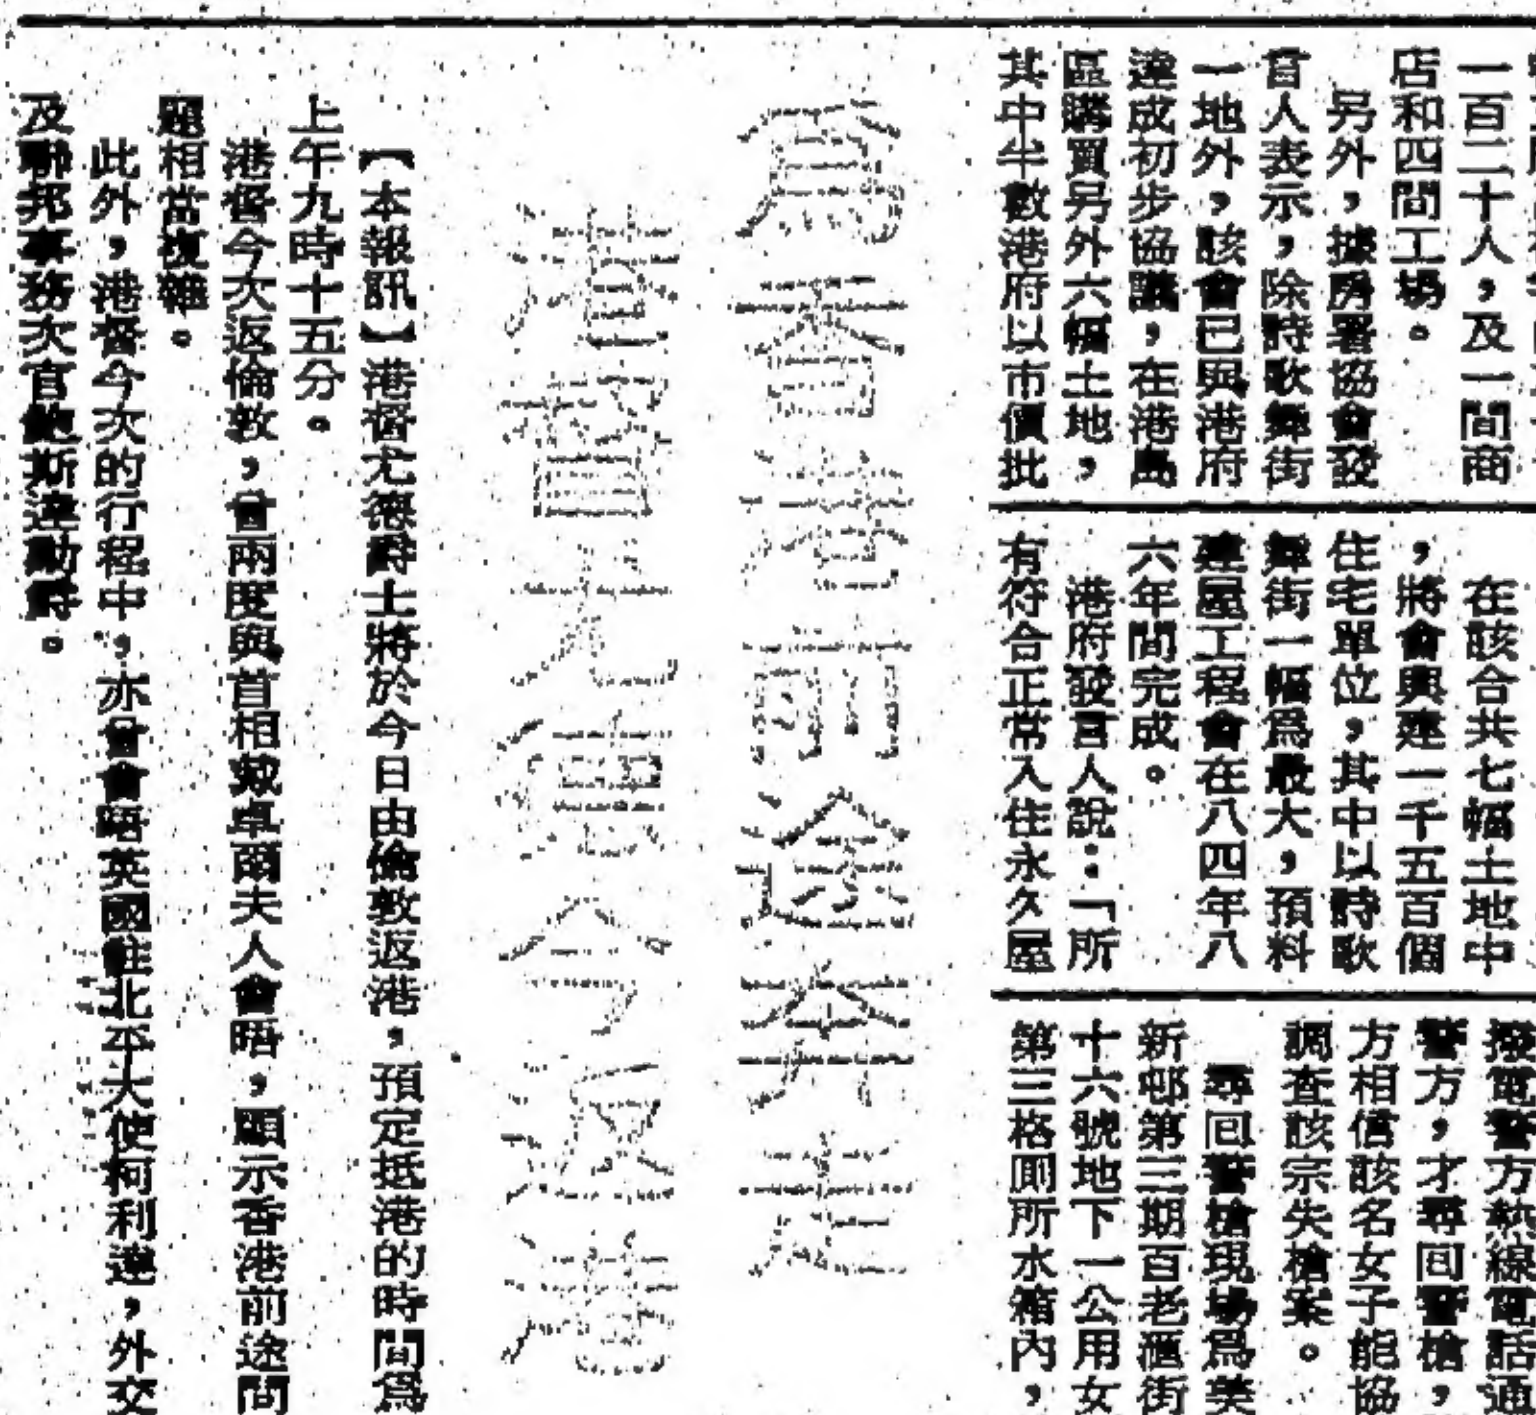 一百二十人，及一間商
店和四間工場。
另外，據房署協會發
言人表示，除詩歌舞街
一地外，該會已與港府
達成初步協議，在港島
區購買另外六幅土地，
其中半數港府以市價批
在該合共七幅土地中
，將會興建一千五百個
住宅單位，其中以詩歌
舞街一幅爲最大，預料
建屋工程會在八四年八
六年間完成。
港府發言人說：「所
有符合正常入住永久屋
撥電警方熱線電話通
警方，才尋回警槍，
方相信該名女子能協
調查該宗失槍案。
尋回警槍現場爲美
新邨第三期百老滙街
十六號地下一公用女
第三格厠所水箱內，
爲香港前途奔走
港督尤德今返港
【本報訊】港督尤德爵士將於今日由倫敦返港，預定抵港的時間爲
上午九時十五分。
港督今次返倫敦，曾兩度與首相戴卓爾夫人會晤，顯示香港前途問
題相當複雜。
此外，港督今次的行程中，亦曾會晤英國駐北平大使柯利達，外交
及聯邦事務次官鮑斯達勳爵。